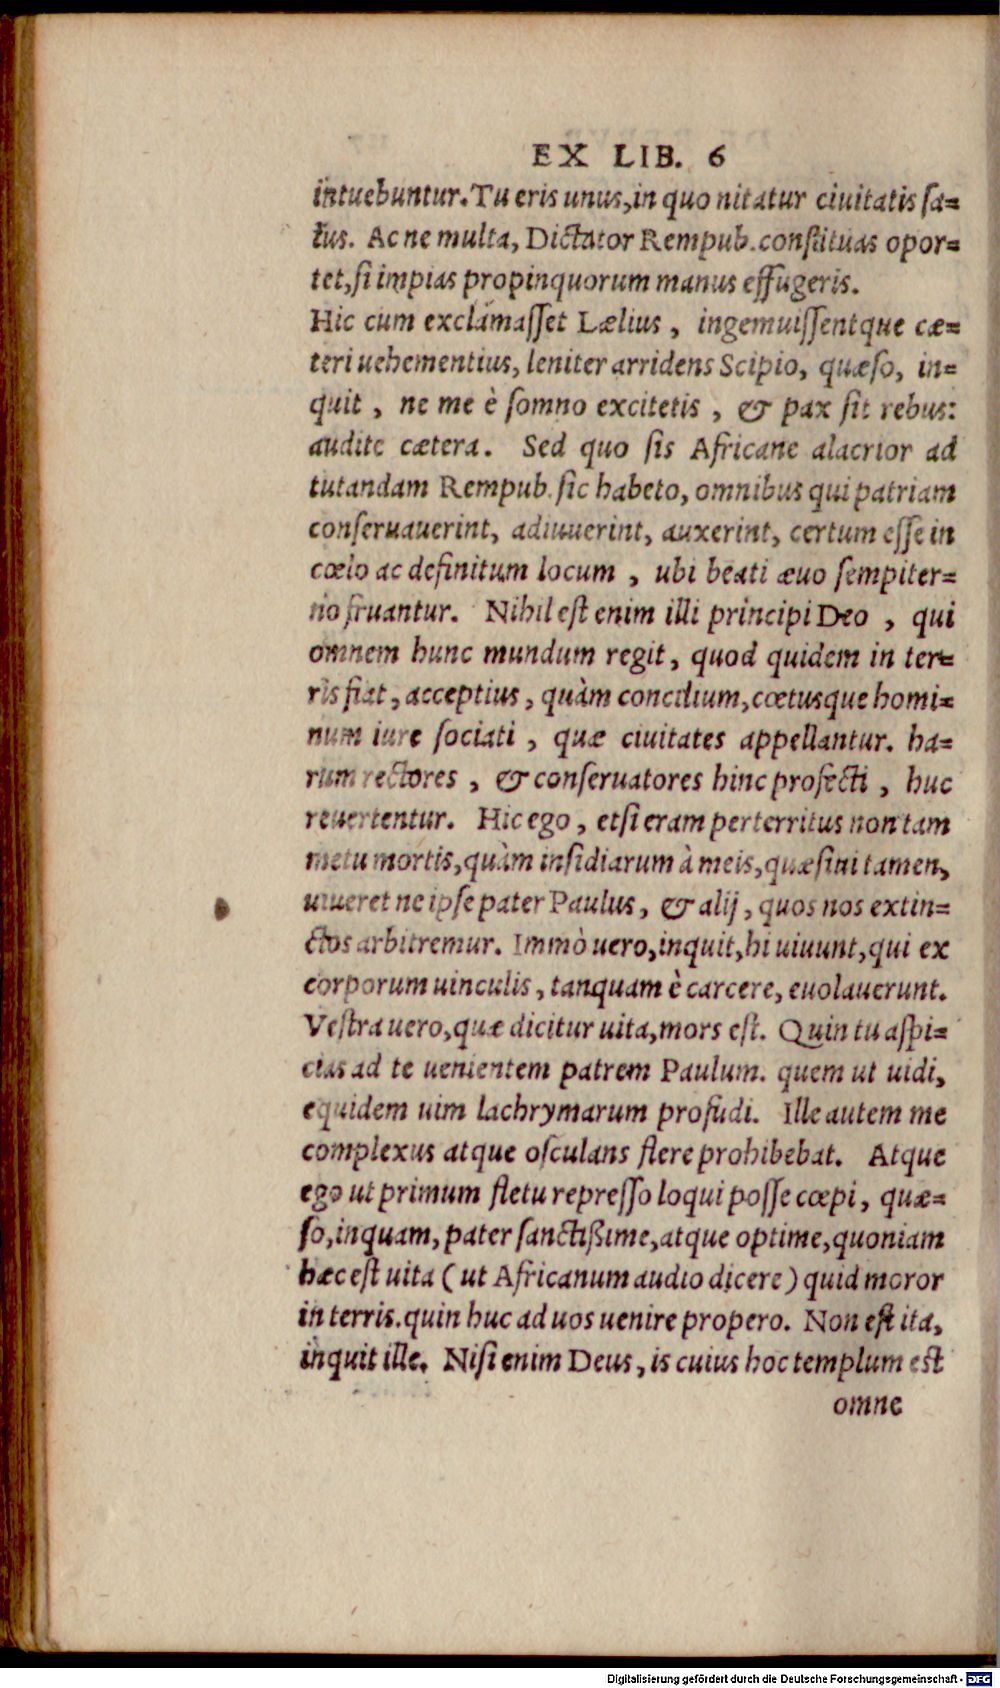 EX LIB. 6
intuebuntur. Tu eris unus, in quo nitatur ciuitatis sa=
lus. Ac ne multa, Dictator Rempub. constituas opor=
tet, si impias propinquorum manus effugeris.
Hic cum exclamasset Lælius, ingemuissentque cæ=
teri uehementius, leniter arridens Scipio, quæso, in=
quit, ne me è somno excitetis, & pax sit rebus:
audite cætera. Sed quo sis Africane alacrior ad
tutandam Rempub. sic habeto, omnibus qui patriam
conseruauerint, adiuuerint, auxerint, certum esse in
cœlo ac definitum locum, ubi beati æuo sempiter=
no fruantur. Nihil est enim illi principi Deo, qui
omnem hunc mundum regit, quod quidem in ter=
ris fiat, acceptius, quàm concilium, cœtusque homi=
num iure sociati, quæ ciuitates appellantur. ha=
rum rectores, & conseruatores hinc profecti, huc
reuertentur. Hic ego, etsi eram perterritus non tam
metu mortis, quàm insidiarum à meis, quæsiui tamen,
uiueret ne ipse pater Paulus, & alij, quos nos extin=
ctos arbitremur. Immò uero, inquit, hi uiuunt, qui ex
corporum uinculis, tanquam è carcere, euolauerunt.
Vestra uero, quæ dicitur uita, mors est. Quin tu aspi=
cias ad te uenientem patrem Paulum. quem ut uidi,
equidem uim lachrymarum profudi. Ille autem me
complexus atque osculans flere prohibebat. Atque
ego ut primum fletu represso loqui posse cœpi, quæ=
so, inquam, pater sanctißime, atque optime, quoniam
hæc est uita (ut Africanum audio dicere) quid moror
in terris. quin huc ad uos uenire propero. Non est ita,
inquit ille. Nisi enim Deus, is cuius hoc templum est
omne
Digitalisierung gefördert durch die Deutsche Forschungsgemeinschaft - DFG